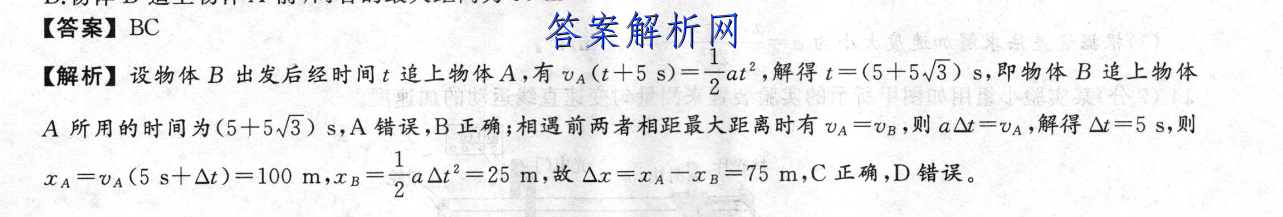 【答案】BC
答案解析网
【解析】设物体 B 出发后经时间 t 追上物体 A,有 v_A(t+5 s)=\frac{1}{2}at²,解得 t=(5+5√3) s,即物体 B 追上物体
A 所用的时间为(5+5√3) s,A 错误,B 正确;相遇前两者相距最大距离时有 v_A=v_B,则 aΔt=v_A,解得 Δt=5 s,则
x_A=v_A(5 s+Δt)=100 m,x_B=\frac{1}{2}aΔt²=25 m,故 Δx=x_A-x_B=75 m,C 正确,D 错误。